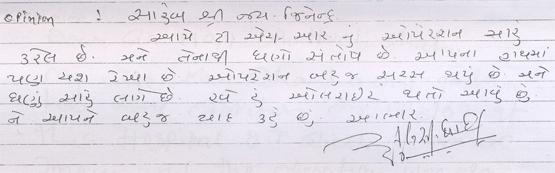 opinion : સાહેબ શ્રી જય જિનેન્દ્ર
આપે ટી એચ-આર નું ઓપરેશન સારૂં
કરેલ છે. મને તેનાથી ઘણો સંતોષ છે આપના હાથમાં
પણ યશ રેખા છે ઓપરેશન બહુજ સરસ થયું છે મને
ઘણું સારૂં લાગે છે હવે હું ઓલરાઈટ થતો આવું છું.
ને આપને બહુજ યાદ કરૂં છું. આભાર.